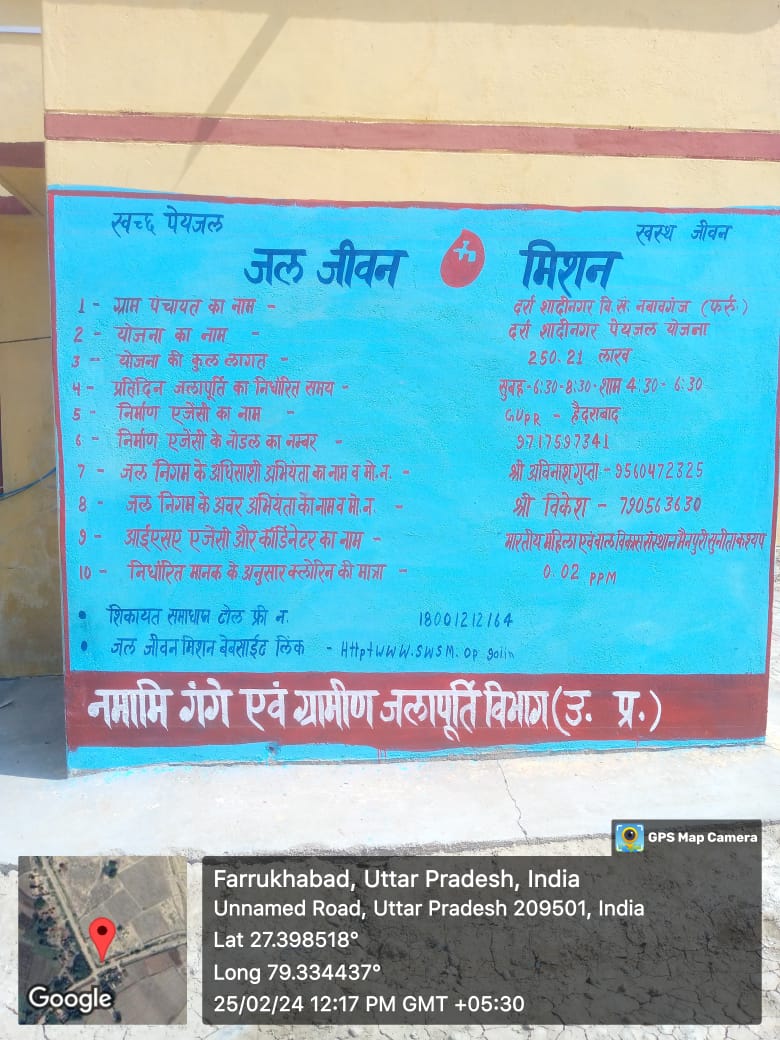 स्वच्छ पेयजल
स्वस्थ जीवन
जल जीवन मिशन
1 - ग्राम पंचायत का नाम - दर्रा शादीनगर वि. सं. नबावगंज (फर्रु.)
2 - योजना का नाम - दर्रा शादीनगर पेयजल योजना
3 - योजना की कुल लागत - 250.21 लाख
4 - प्रतिदिन जलापूर्ति का निर्धारित समय - सुबह-6:30-8:30-शाम 4:30-6:30
5 - निर्माण एजेंसी का नाम - GVPR - हैदराबाद
6 - निर्माण एजेंसी के नोडल का नम्बर - 9717597341
7 - जल निगम के अधिसाशी अभियंता का नाम व मो.न. - श्री अविनाश गुप्ता - 9560472325
8 - जल निगम के अवर अभियंता का नाम व मो.न. - श्री विकेश - 790563630
9 - आईएसए एजेंसी और कॉर्डिनेटर का नाम - भारतीय महिला एवं बाल विकास संस्थान मैनपुरी सुनीता कश्यप
10 - निर्धारित मानक के अनुसार क्लोरिन की मात्रा - 0.02 PPM
• शिकायत समाधान टोल फ्री न. 18001212164
• जल जीवन मिशन बेबसाईट लिंक - Http+WWW.SWSM.Op goiin
नमामि गंगे एवं ग्रामीण जलापूर्ति विभाग (उ. प्र.)
GPS Map Camera
Farrukhabad, Uttar Pradesh, India
Unnamed Road, Uttar Pradesh 209501, India
Lat 27.398518°
Long 79.334437°
25/02/24 12:17 PM GMT +05:30
Google